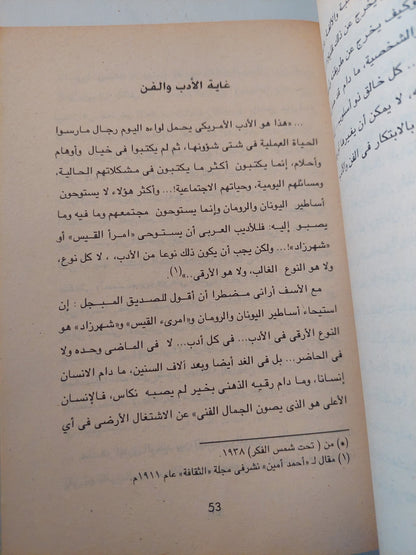 غاية الأدب والفن
... «هذا هو الأدب الأمريكى يحمل لواءه اليوم رجال مارسوا
الحياة العملية فى شتى شؤونها، ثم لم يكتبوا فى خيال وأوهام
وأحلام، إنما يكتبون أكثر ما يكتبون فى مشكلاتهم الحالية،
ومسائلهم اليومية، وحياتهم الاجتماعية!... وأكثر هؤلاء لا يستوحون
أساطير اليونان والرومان وإنما يستوحون مجتمعهم وما فيه وما
يصبو إليه: فللأديب العربى أن يستوحى «امرأ القيس» أو
«شهرزاد»!... ولكن يجب أن يكون ذلك نوعا من الأدب،.. لا كل نوع،
ولا هو النوع الغالب، ولا هو الأرقى..»(١)
مع الأسف أرانى مضطرا أن أقول للصديق المبجل : إن
استيحاء أساطير اليونان والرومان و«امرىء القيس» و«شهرزاد» هو
النوع الأرقى فى الأدب... فى كل أدب... لا فى الماضى وحده ولا
فى الحاضر... بل فى الغد أيضا وبعد آلاف السنين، ما دام الانسان
إنسانا، وما دام رقيه الذهنى بخير لم يصبه نكاس، فالإنسان
الأعلى هو الذى يصون الجمال الفنى» عن الاشتغال الأرضى فى أي
(*) من ( تحت شمس الفكر) ١٩٣٨.
(١) مقال لـ «أحمد أمين» نشرفى مجلة «الثقافة» عام ١٩١١م.
53
يخرج عن ذلك
وكيف يخرج عن
الشخصية، ما دام
... كل خالق ذو أسلوب
لا يمكن أن
بالابتكار فى الفن